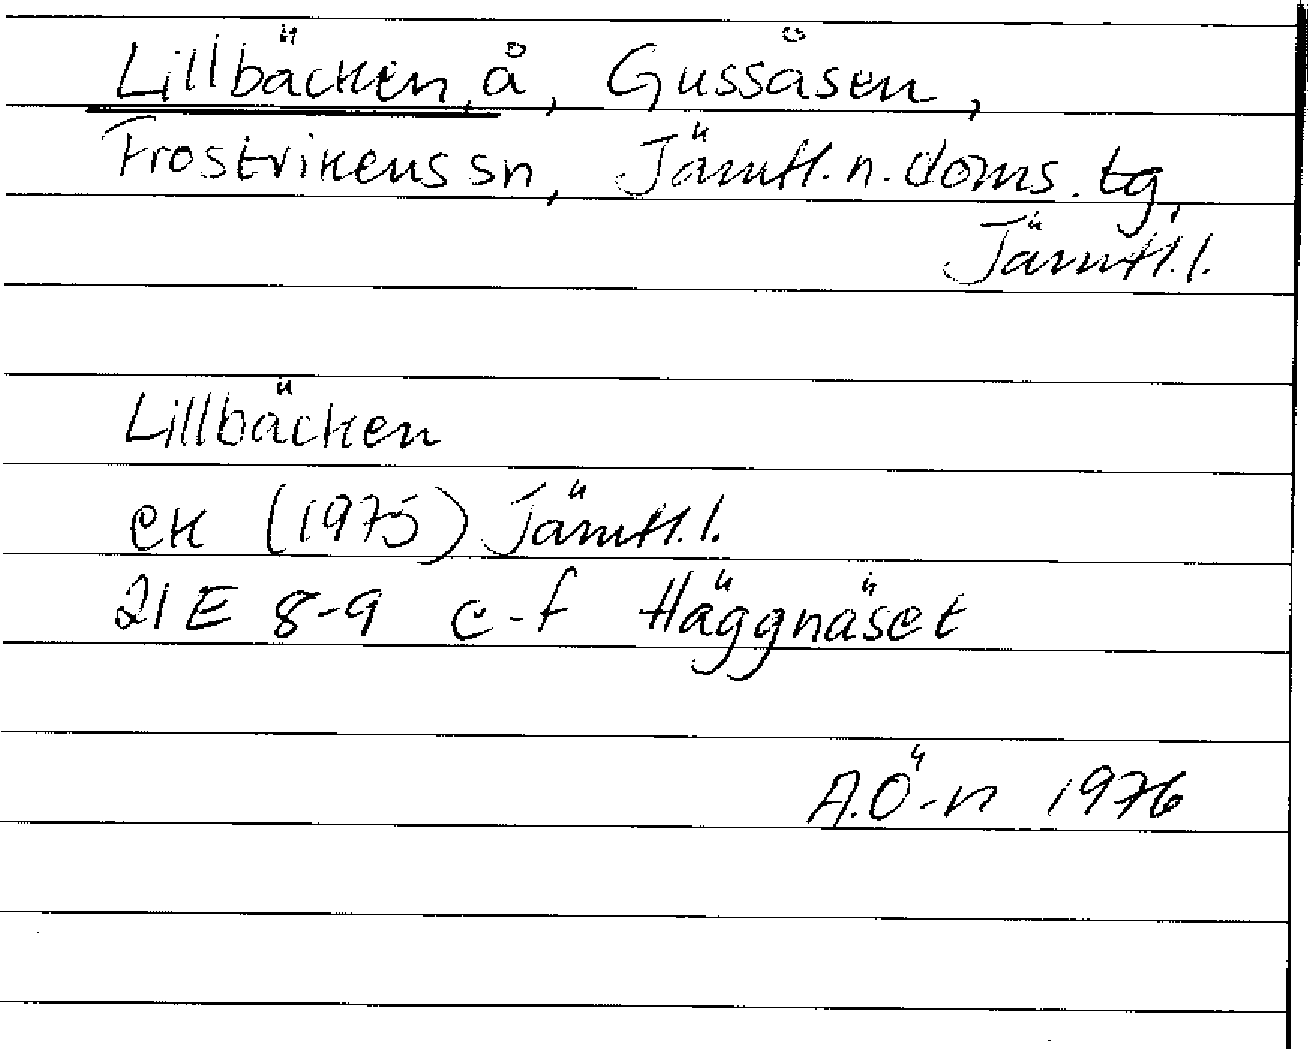 Lillbäcken, å, Gussåsen,
Frostvikens sn, Jämtl. n. doms. tg,
Jämtl. l.
Lillbäcken
ek (1975) Jämtl. l.
21 E 8-9 c-f Häggnäset
A.Ö-n 1976